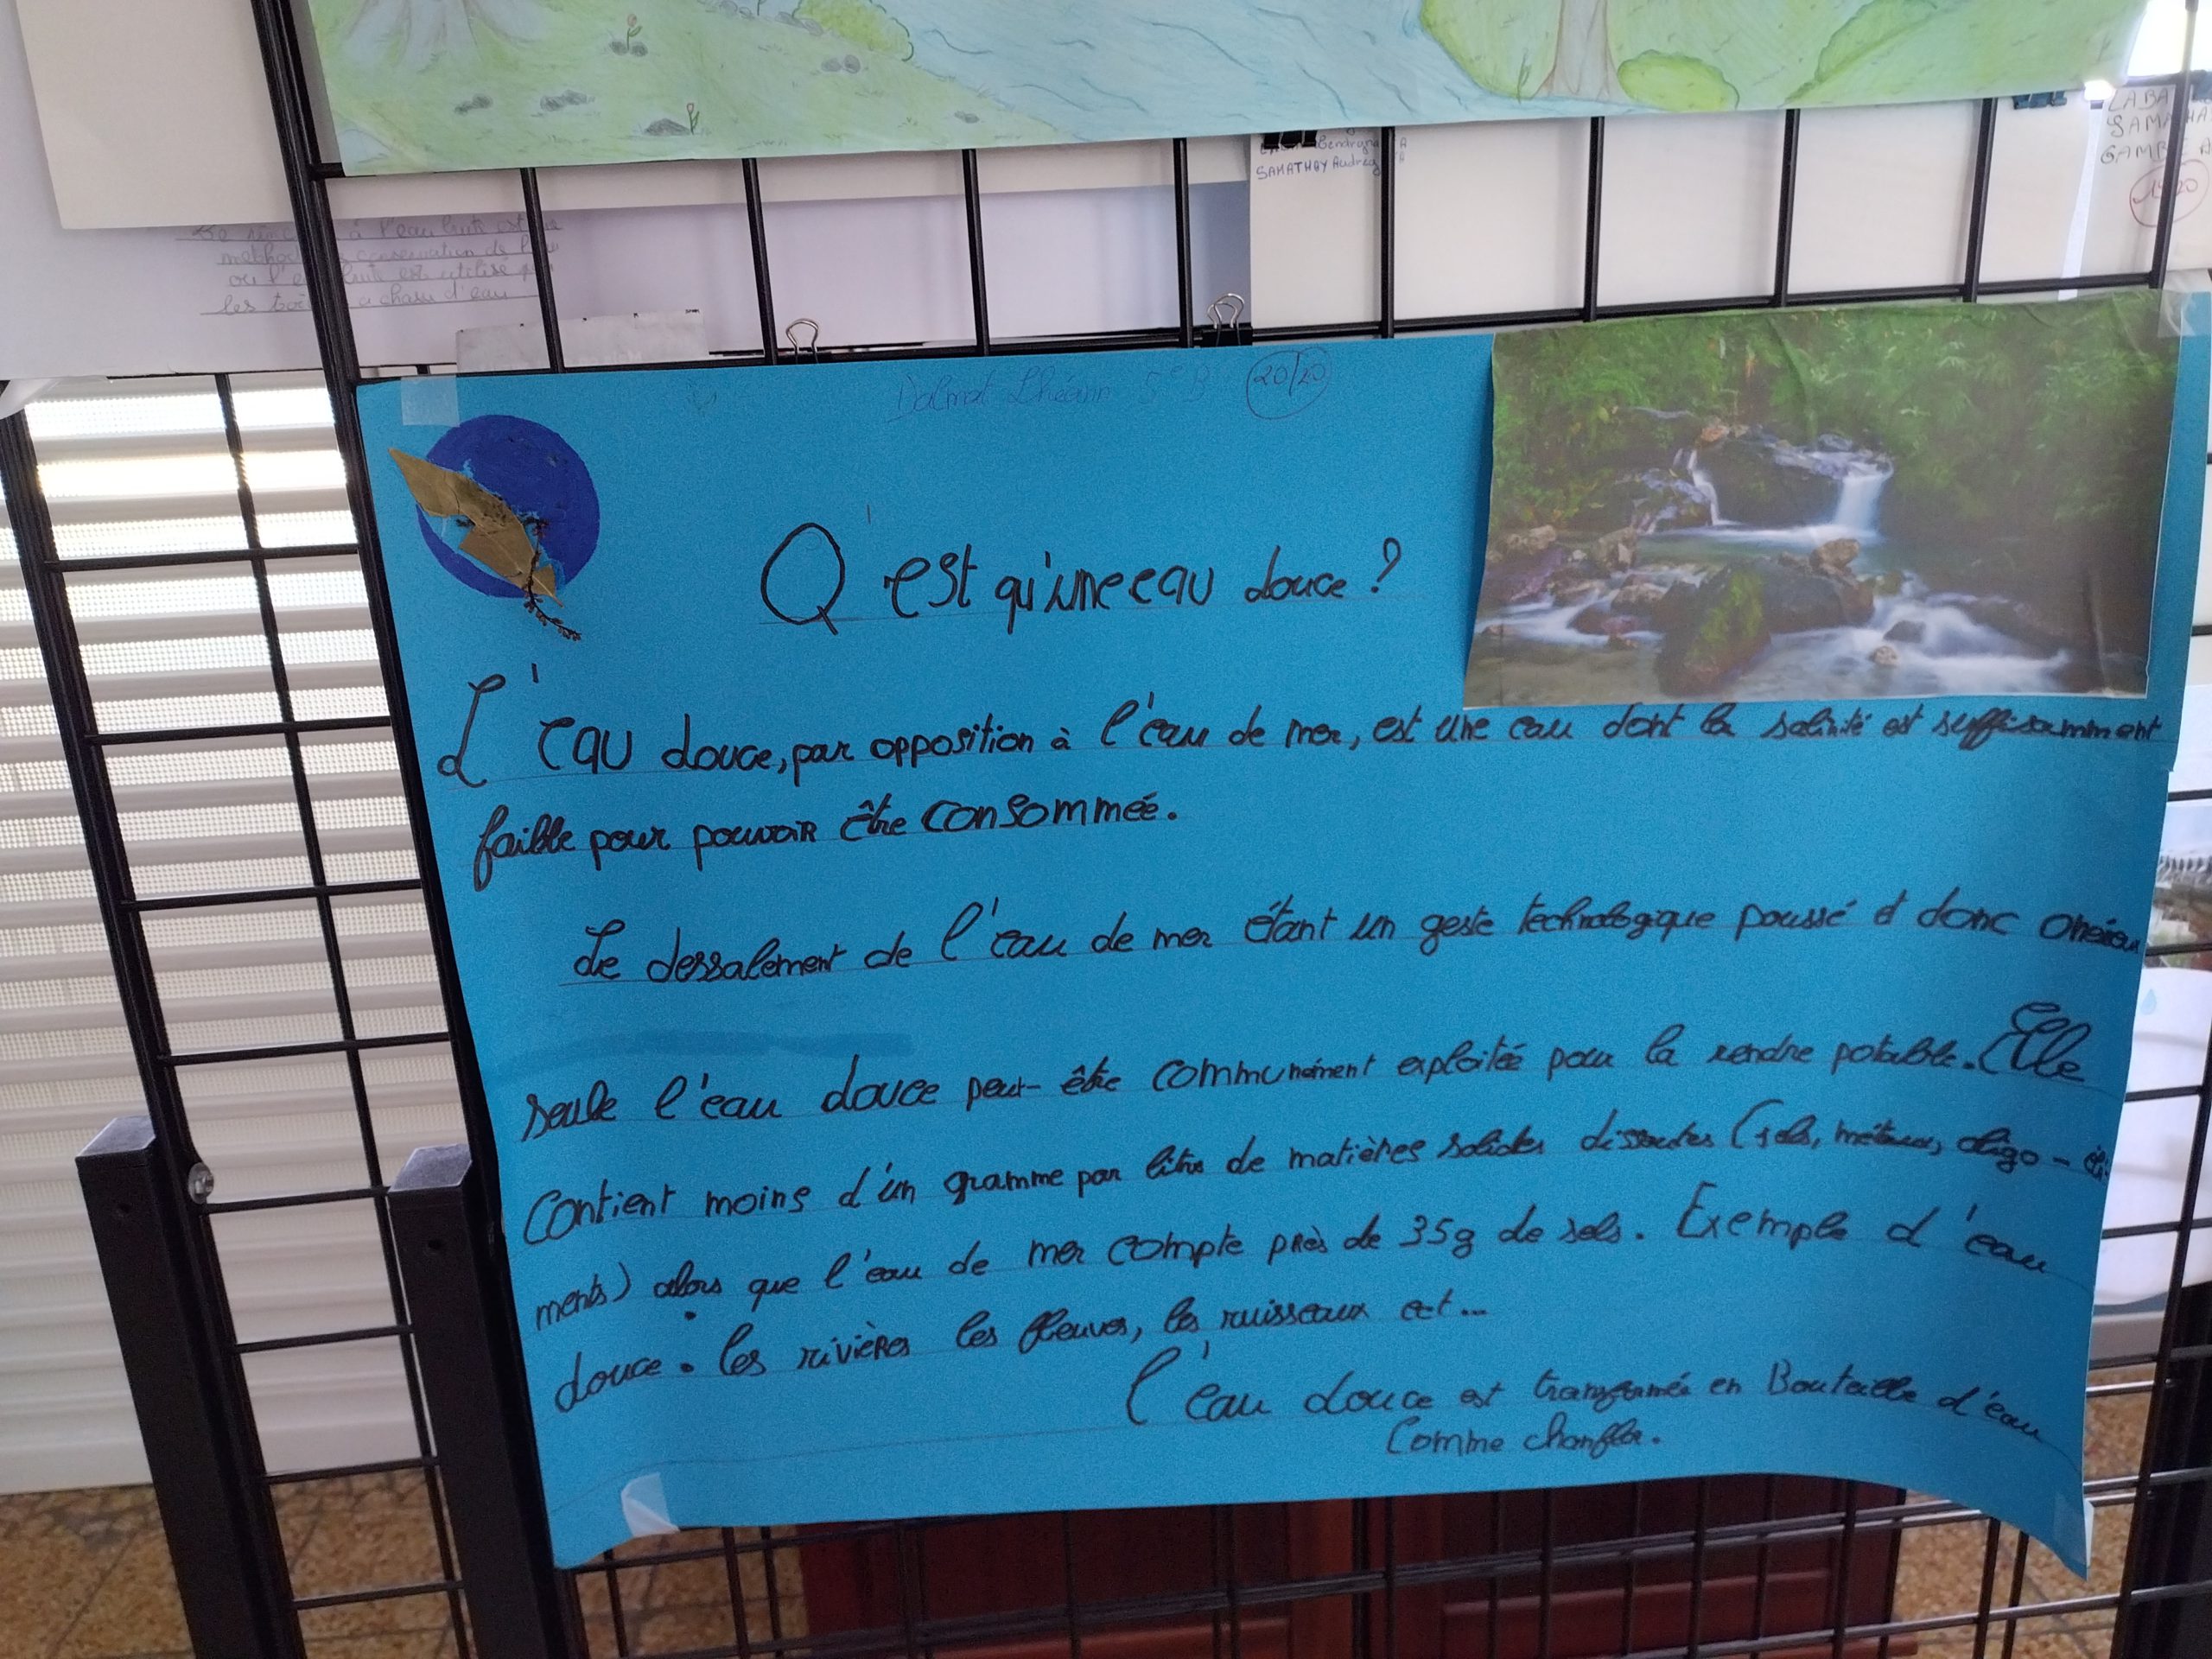 à l'eau
conservation de
les a chasse d'eau
SAMATHOY Audrey
LABA
SAMA HA
GAMB A
Dalmat Lhéann 5e B 20/20
Q'est qu'une eau douce ?
L'eau douce, par opposition à l'eau de mer, est une eau dont la salinité est suffisamment
faible pour pouvoir être consommée.
Le dessalement de l'eau de mer étant un geste technologique poussé et donc onéreu
seule l'eau douce peut-être communément exploitée pour la rendre potable. Elle
contient moins d'un gramme par litre de matières solides dissoutes (sels, métaux, oligo-élé
ments) alors que l'eau de mer compte près de 35g de sels. Exemple d'eau
douce : les rivières les fleuves, les ruisseaux ect...
l'eau douce est transformée en Bouteille d'eau
Comme chanflor.